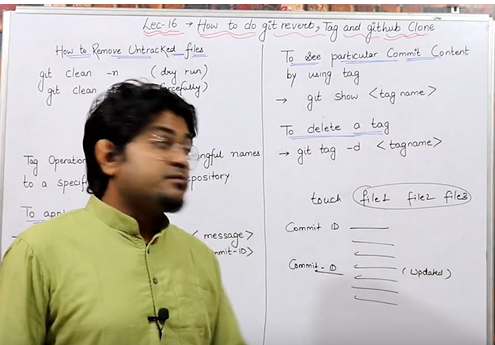 Lec-16 → How to do git reverb, Tag and github Clone
How to Remove Untracked files
git clean -n (dry run)
git clean
Tag Operation names
to a specif
To appl
<message>
To see particular Commit Content
by using tag
→ git show <tag name>
To delete a tag
→ git tag -d <tagname>
touch file1 file2 file3
Commit ID
Commit-ID (updated)